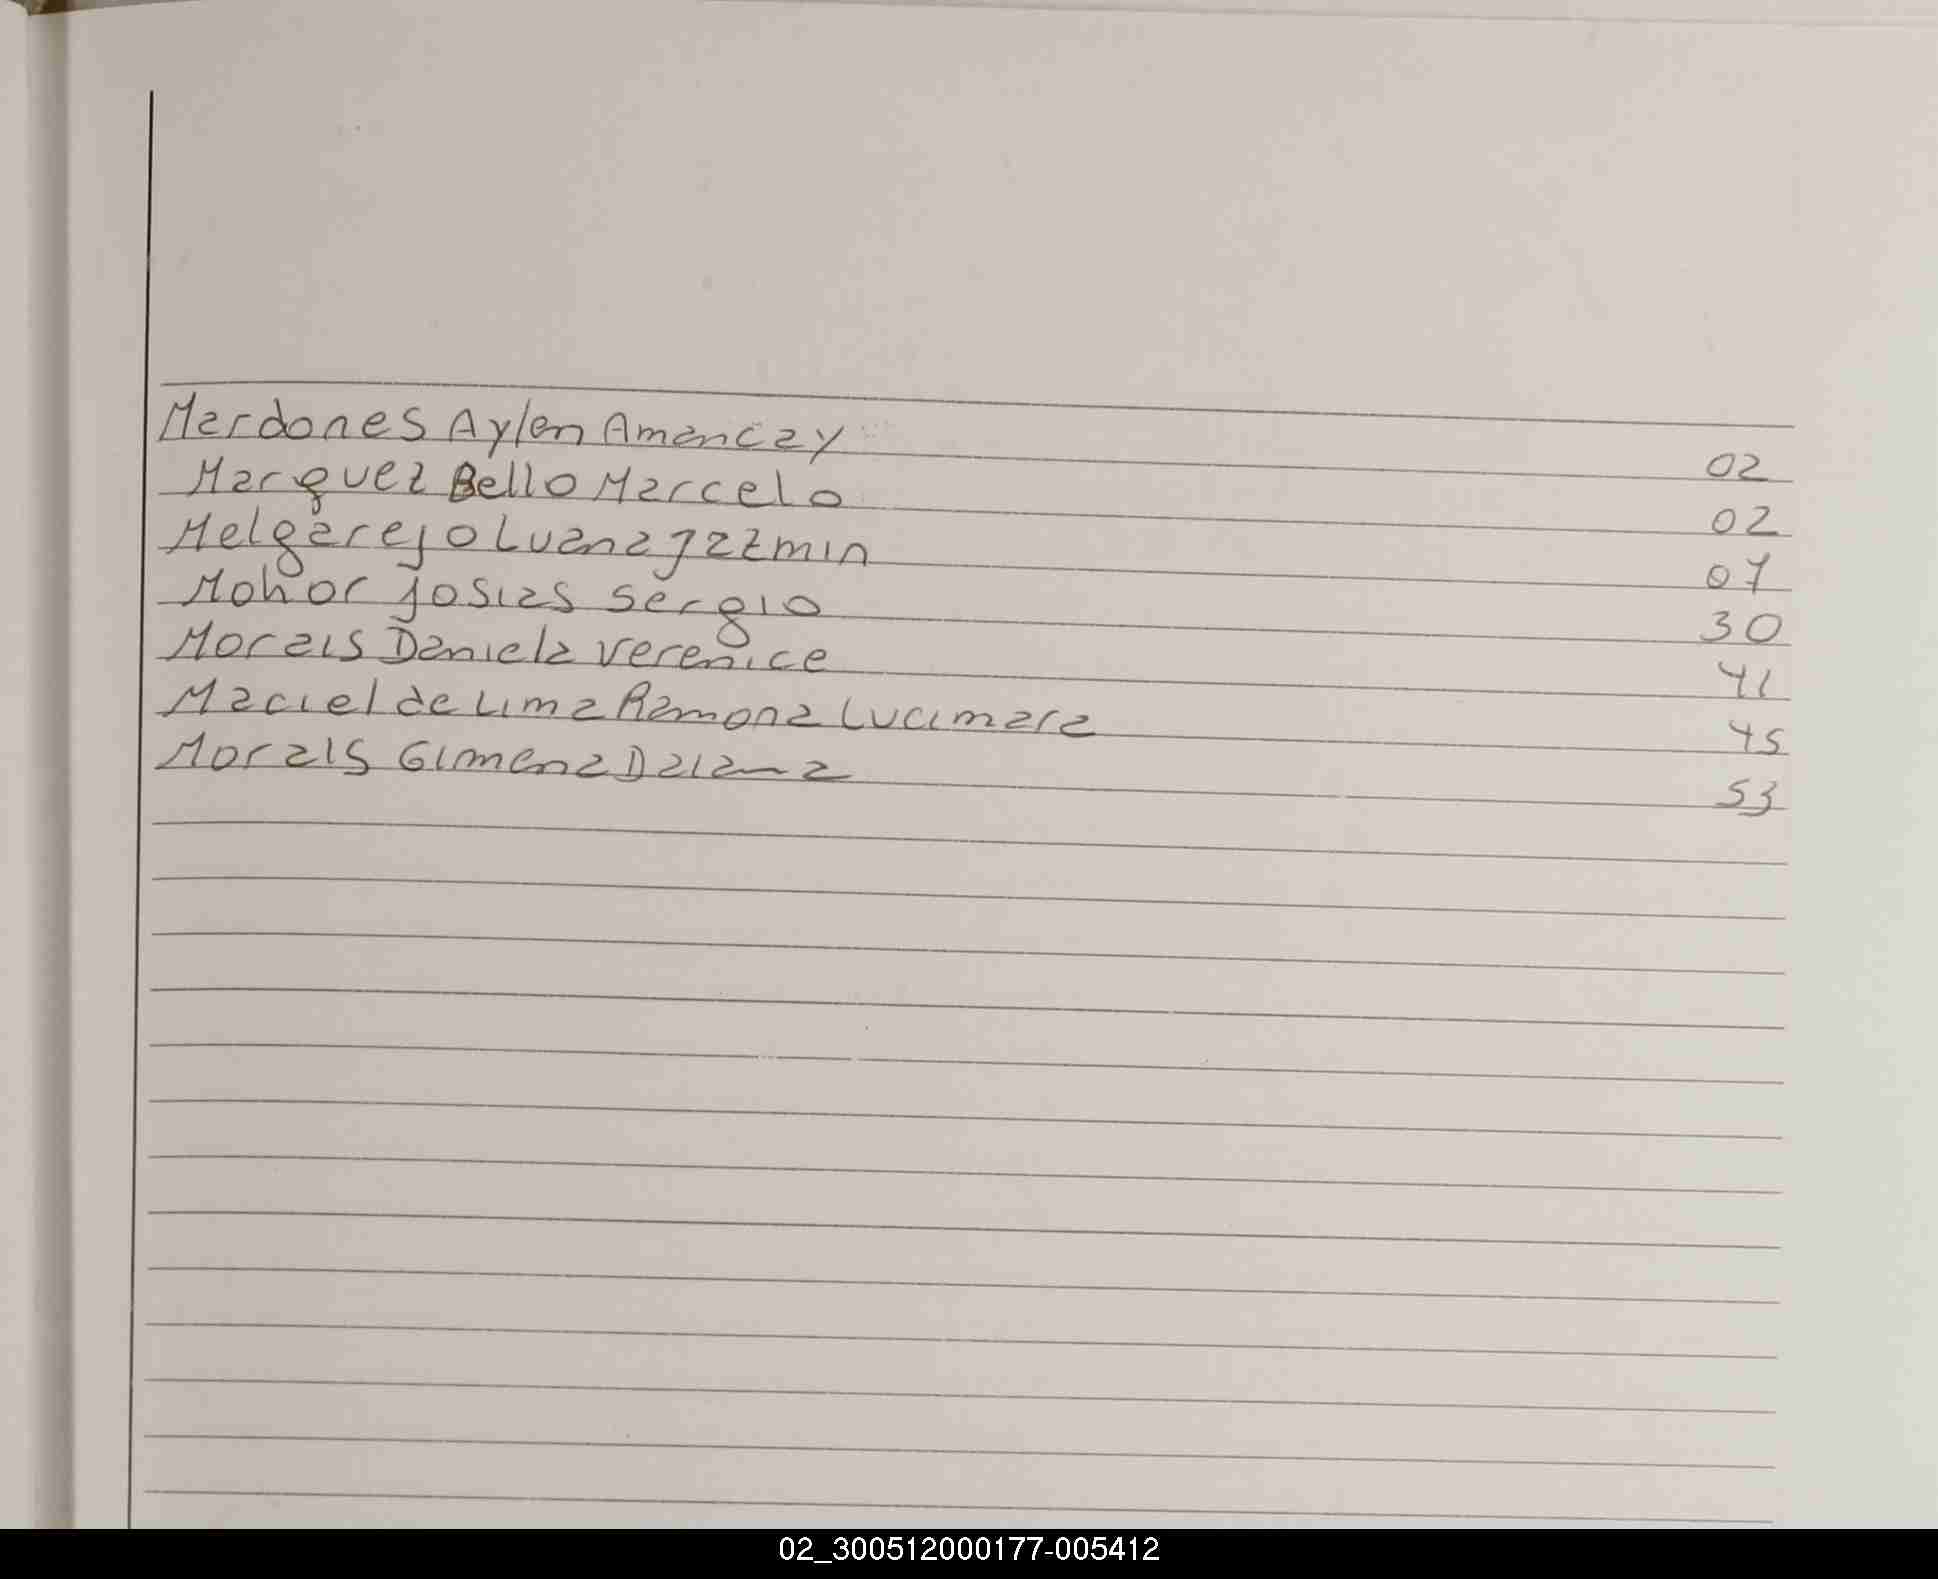 Mardones Aylen Amancay 02
Marquez Bello Marcelo 02
Melgarejo Luana Jazmin 07
Mohor Josias Sergio 30
Morais Daniela Verenice 41
Maciel de Lima Ramona Lucimara 45
Morais Gimena Daiana 53
02_300512000177-005412